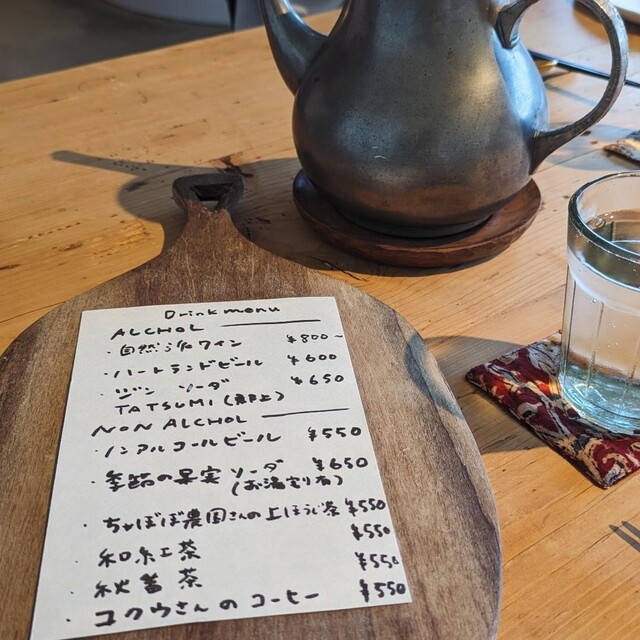 Drink menu
ALCHOL
・自然派ワイン ¥800〜
・ハートランドビール ¥600
・ジン ソーダ ¥650
TATSUMI (郡上)
NON ALCHOL
・ノンアルコールビール ¥550
・季節の果実ソーダ ¥650
(お湯割り有)
・ちゃばば農園さんの上ほうじ茶 ¥550
・和紅茶 ¥550
・秋蕃茶 ¥550
・コクウさんのコーヒー ¥550